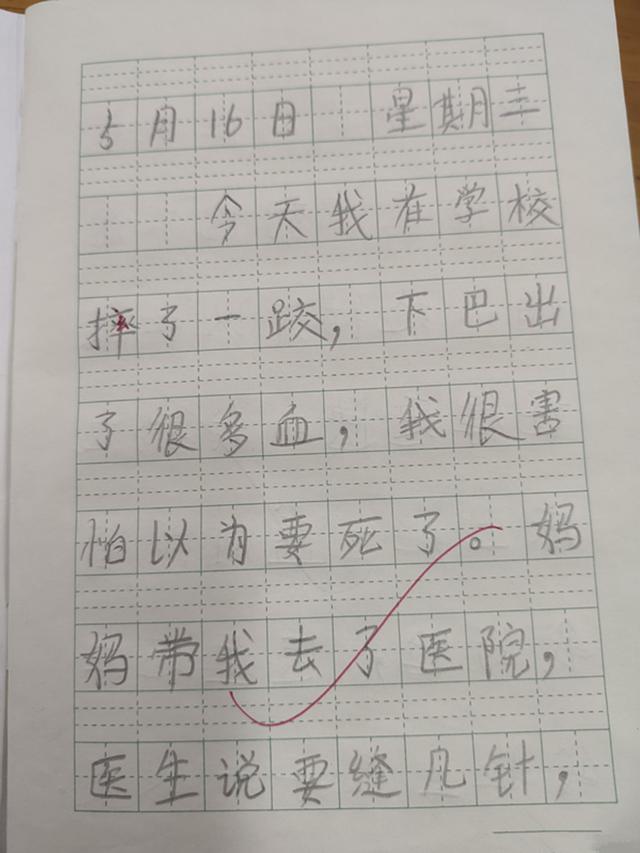 5月16日 星期三
今天我在学校
摔了一跤，下巴出
了很多血，我很害
怕以为要死了。妈
妈带我去了医院，
医生说要缝凡针，